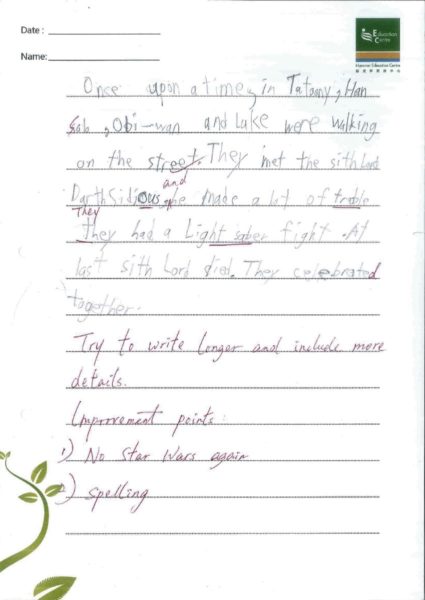 Date :
Education
Centre
Name:
Once upon a time, in Tatoony, Han
Solo, Obi-wan and Lake were walking
on the street. They met the sith Lord
and
DarthSidious, he made a lot of troble
They
they had a Light saber fight. At
last sith Lord died. They celebrated
together.
Try to write longer and include more
details.
Improvement points:
1) No Star Wars again
2) Spelling